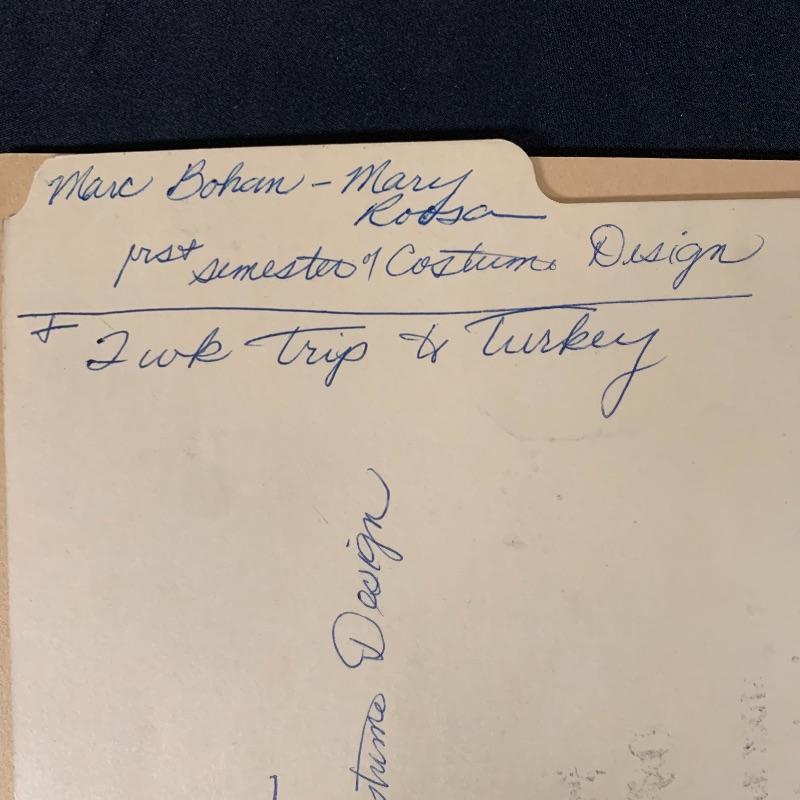 Marc Bohan - Mary
Roosa
first semester of Costume Design
+ 2 wk Trip to Turkey
Design